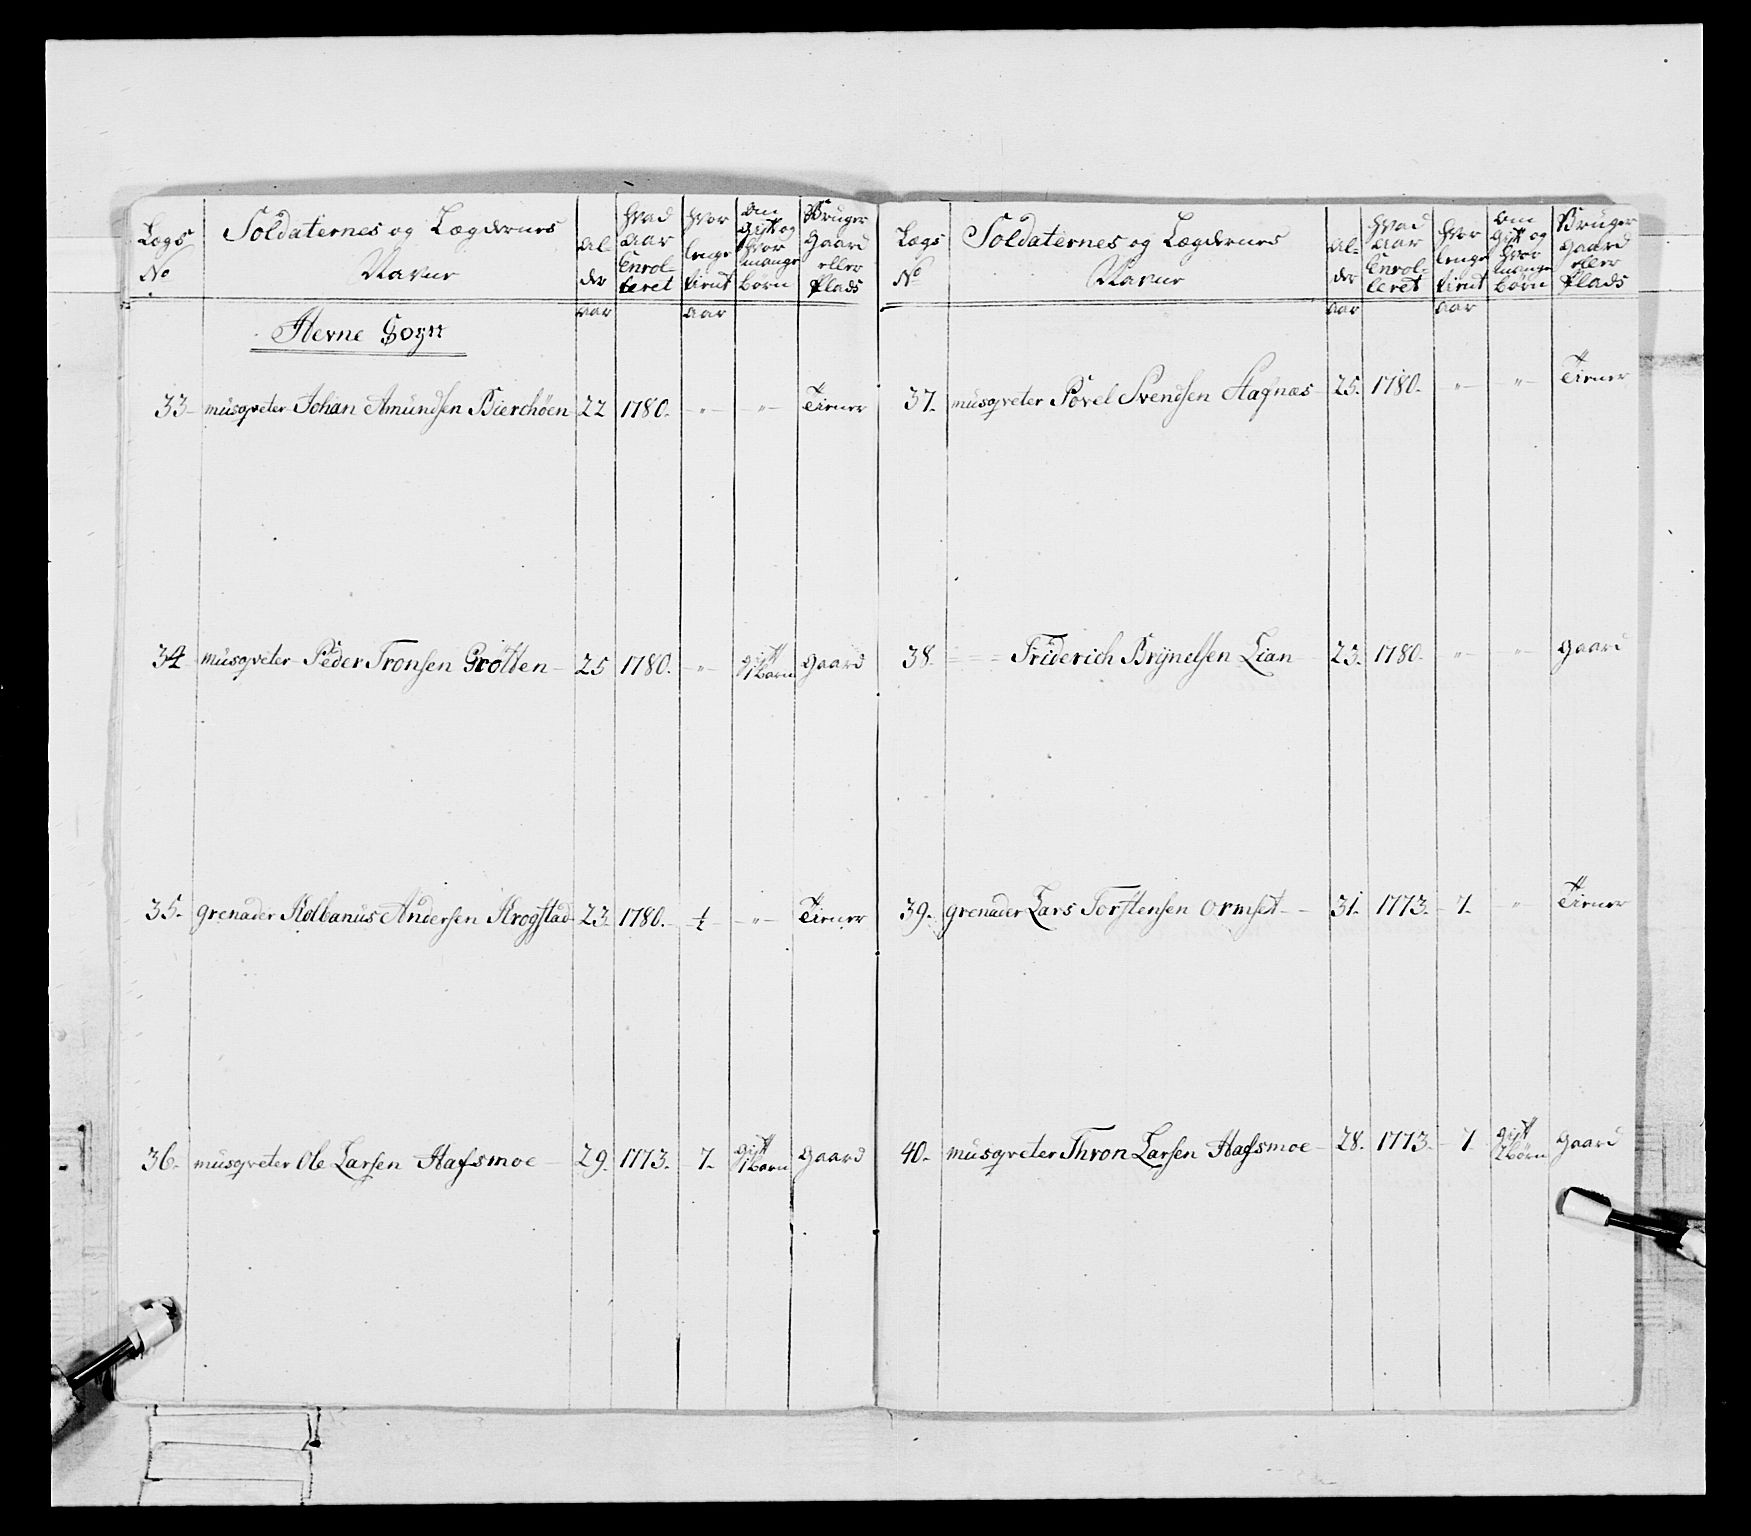 Lægs No | Soldaternes og Lægdernes Navne | Alder | Hvad Aar Enrolleret | Hvor lenge tient | Om Gift og Hvor mange Børn | Bruger Gaard eller Plads
aar | aar
Herne Sogn
33- musqveter Johan Amundsen Bierchöen 22 1780. -"- -"- Tiener
34 musqveter Peder Tronsen Grötten 25 1780. -"- gift 1 Barn gaard
35- grenader Kolbanus Andersen Krogstad 23. 1780. -"- Tiener
36- musqveter Ole Larsen Hafsmoe 29. 1773. 7. gift 1 Barn gaard
Lægs No | Soldaternes og Lægdernes Navne | Alder | Hvad Aar Enrolleret | Hvor lenge tient | Om Gift og Hvor mange Børn | Bruger Gaard eller Plads
aar | aar
37. musqveter Povel Svendsen Hagnæs 25. 1780. -"- -"- Tiener
38. Friderich Brynelsen Lian 23. 1780. -"- -"- gaard
39. grenader Lars Torstensen Ormset 31. 1773. 7. -"- Tiener
40. musqveter Thron Larsen Hafsmoe 28. 1773. 7. gift 2 Børn gaard